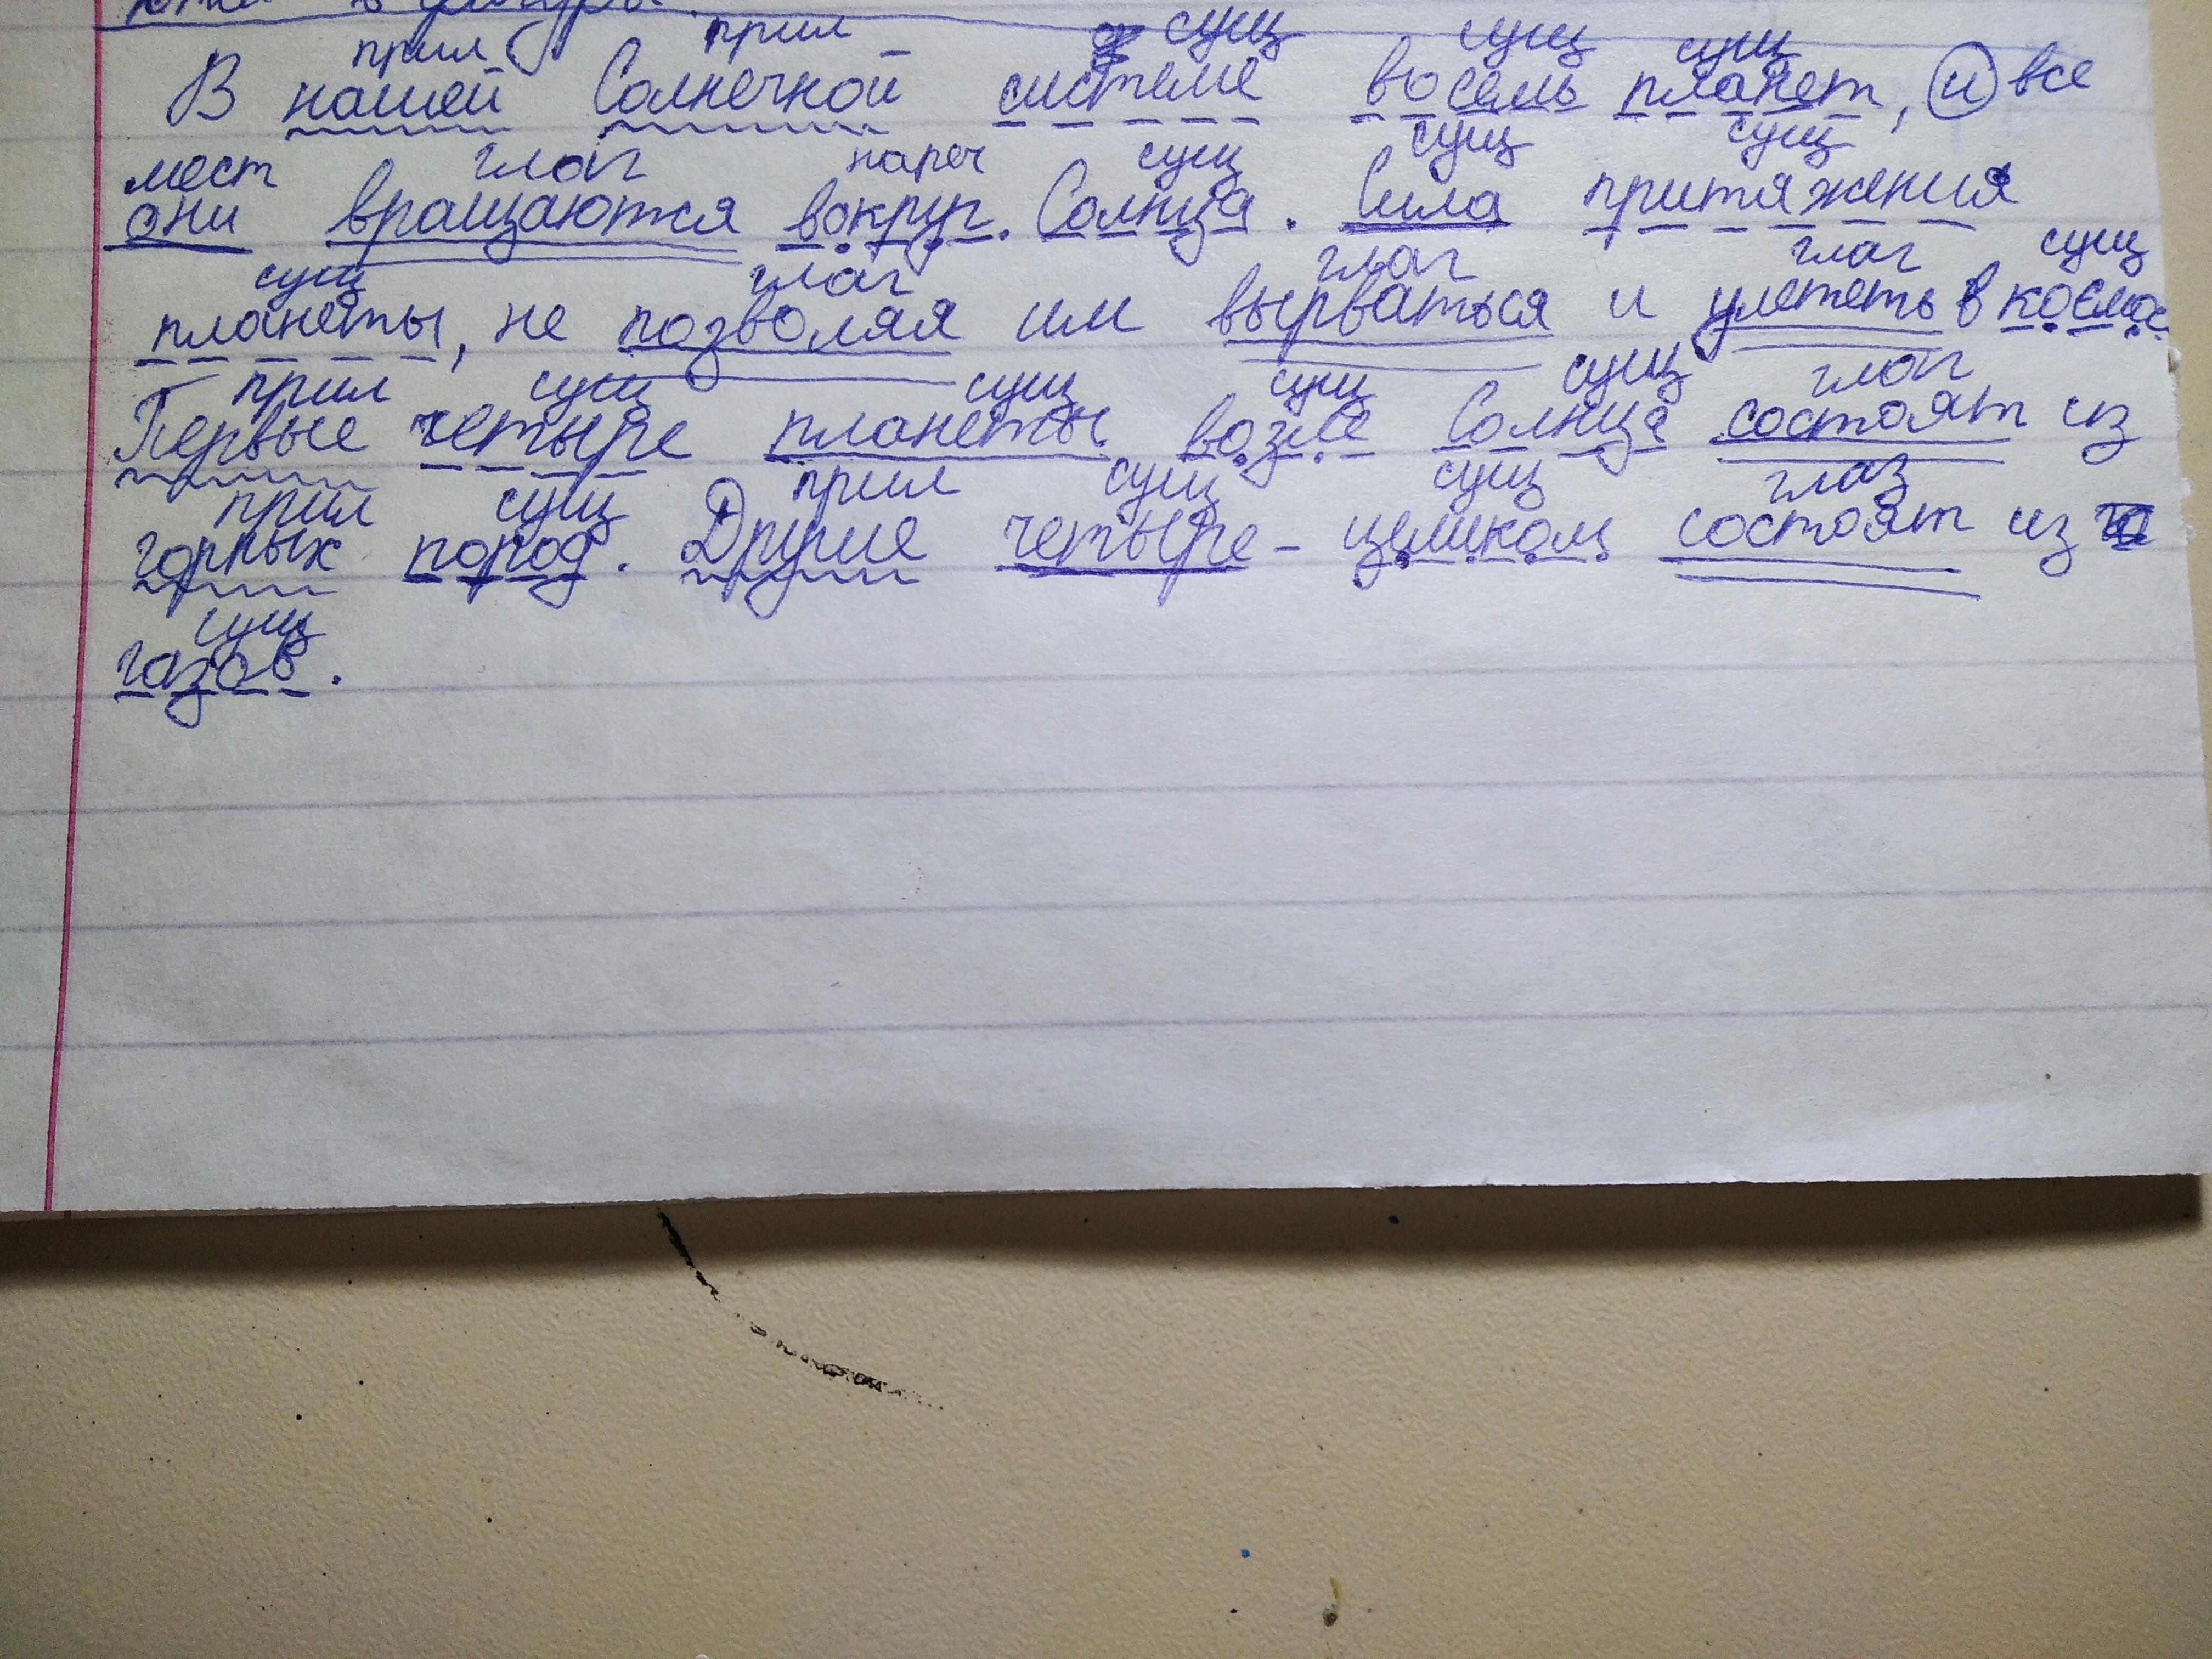 в фигуры.
прил прил сущ сущ сущ
В нашей Солнечной системе восемь планет, и все
мест глаг нареч сущ сущ сущ
они вращаются вокруг Солнца. Сила притяжения
сущ глаг глаг глаг сущ
планеты, не позволяя им вырваться и улететь в космос
прил сущ сущ сущ сущ глаг
Первые четыре планеты возле Солнца состоят из
прил сущ прил сущ сущ глаг
горных пород. Другие четыре - целиком состоят из
сущ
газов.